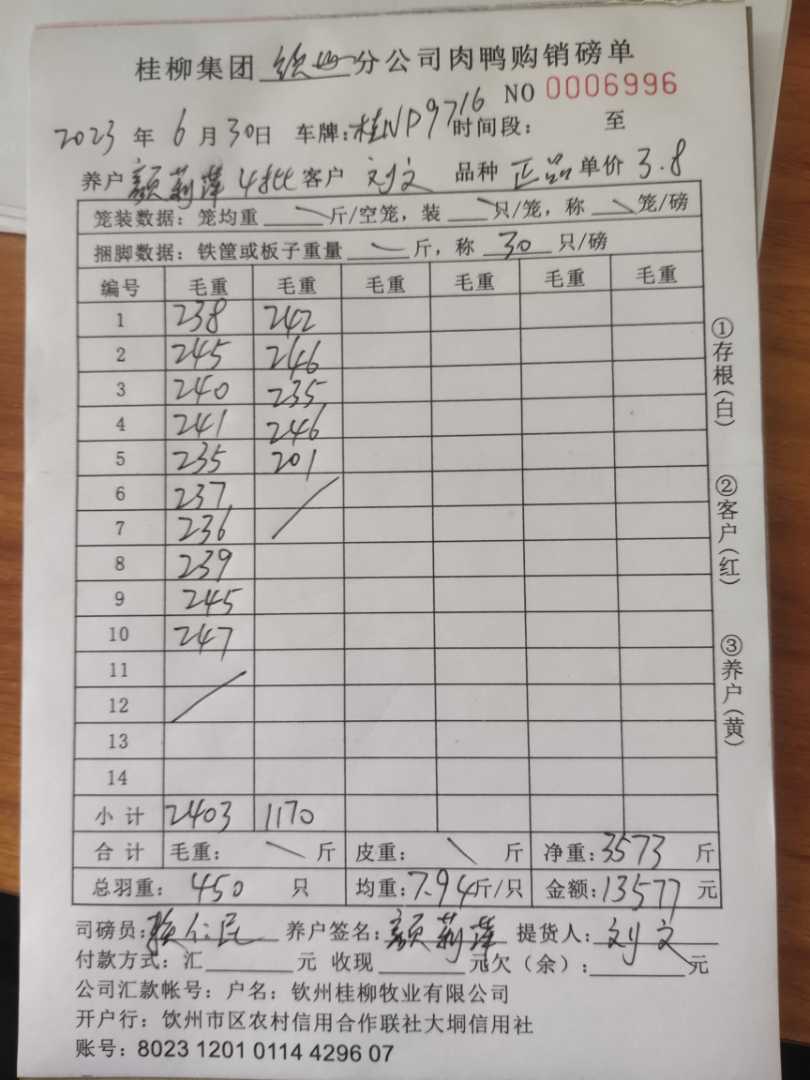 桂柳集团 分公司肉鸭购销磅单
NO 0006996
2023 年 6 月 30 日 车牌：桂NP9716 时间段： 至
养户 颜莉萍 48批 客户 刘文 品种 正品 单价 3.8
笼装数据：笼均重 斤/空笼，装 只/笼，称 笼/磅
捆脚数据：铁筐或板子重量 斤，称 30 只/磅
编号 毛重 毛重 毛重 毛重 毛重 毛重
1 238 242
2 245 246
3 240 235
4 241 246
5 235 201
6 237
7 236
8 239
9 245
10 247
11
12
13
14
小计 2403 1170
合计 毛重： 斤 皮重： 斤 净重：3573 斤
总羽重：450 只 均重：7.94斤/只 金额：13577 元
司磅员： 养户签名：颜莉萍 提货人：刘文
付款方式：汇 元 收现 元欠（余）： 元
公司汇款帐号：户名：钦州桂柳牧业有限公司
开户行：饮州市区农村信用合作联社大垌信用社
账号：8023 1201 0114 4296 07
①存根（白）
②客户（红）
③养户（黄）